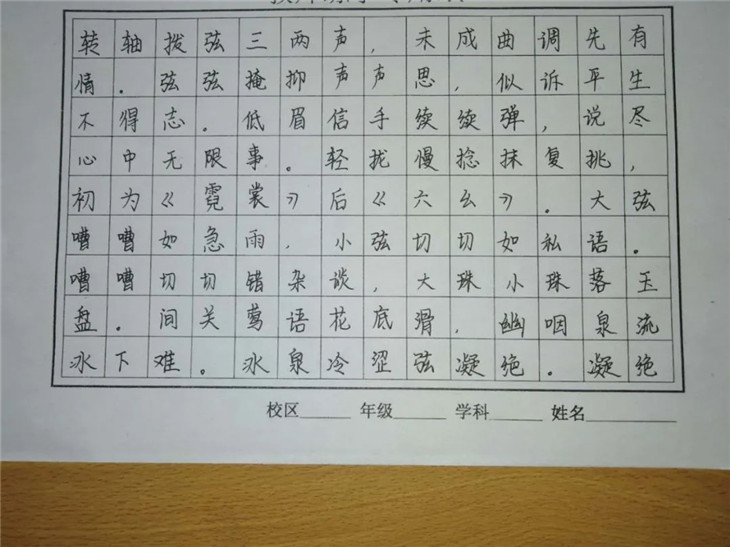 转轴拨弦三两声,未成曲调先有
情。弦弦掩抑声声思,似诉平生
不得志。低眉信手续续弹,说尽
心中无限事。轻拢慢捻抹复挑,
初为《霓裳》后《六幺》。大弦
嘈嘈如急雨,小弦切切如私语。
嘈嘈切切错杂谈,大珠小珠落玉
盘。间关莺语花底滑,幽咽泉流
冰下难。冰泉冷涩弦凝绝。凝绝
校区______ 年级______ 学科______ 姓名___________